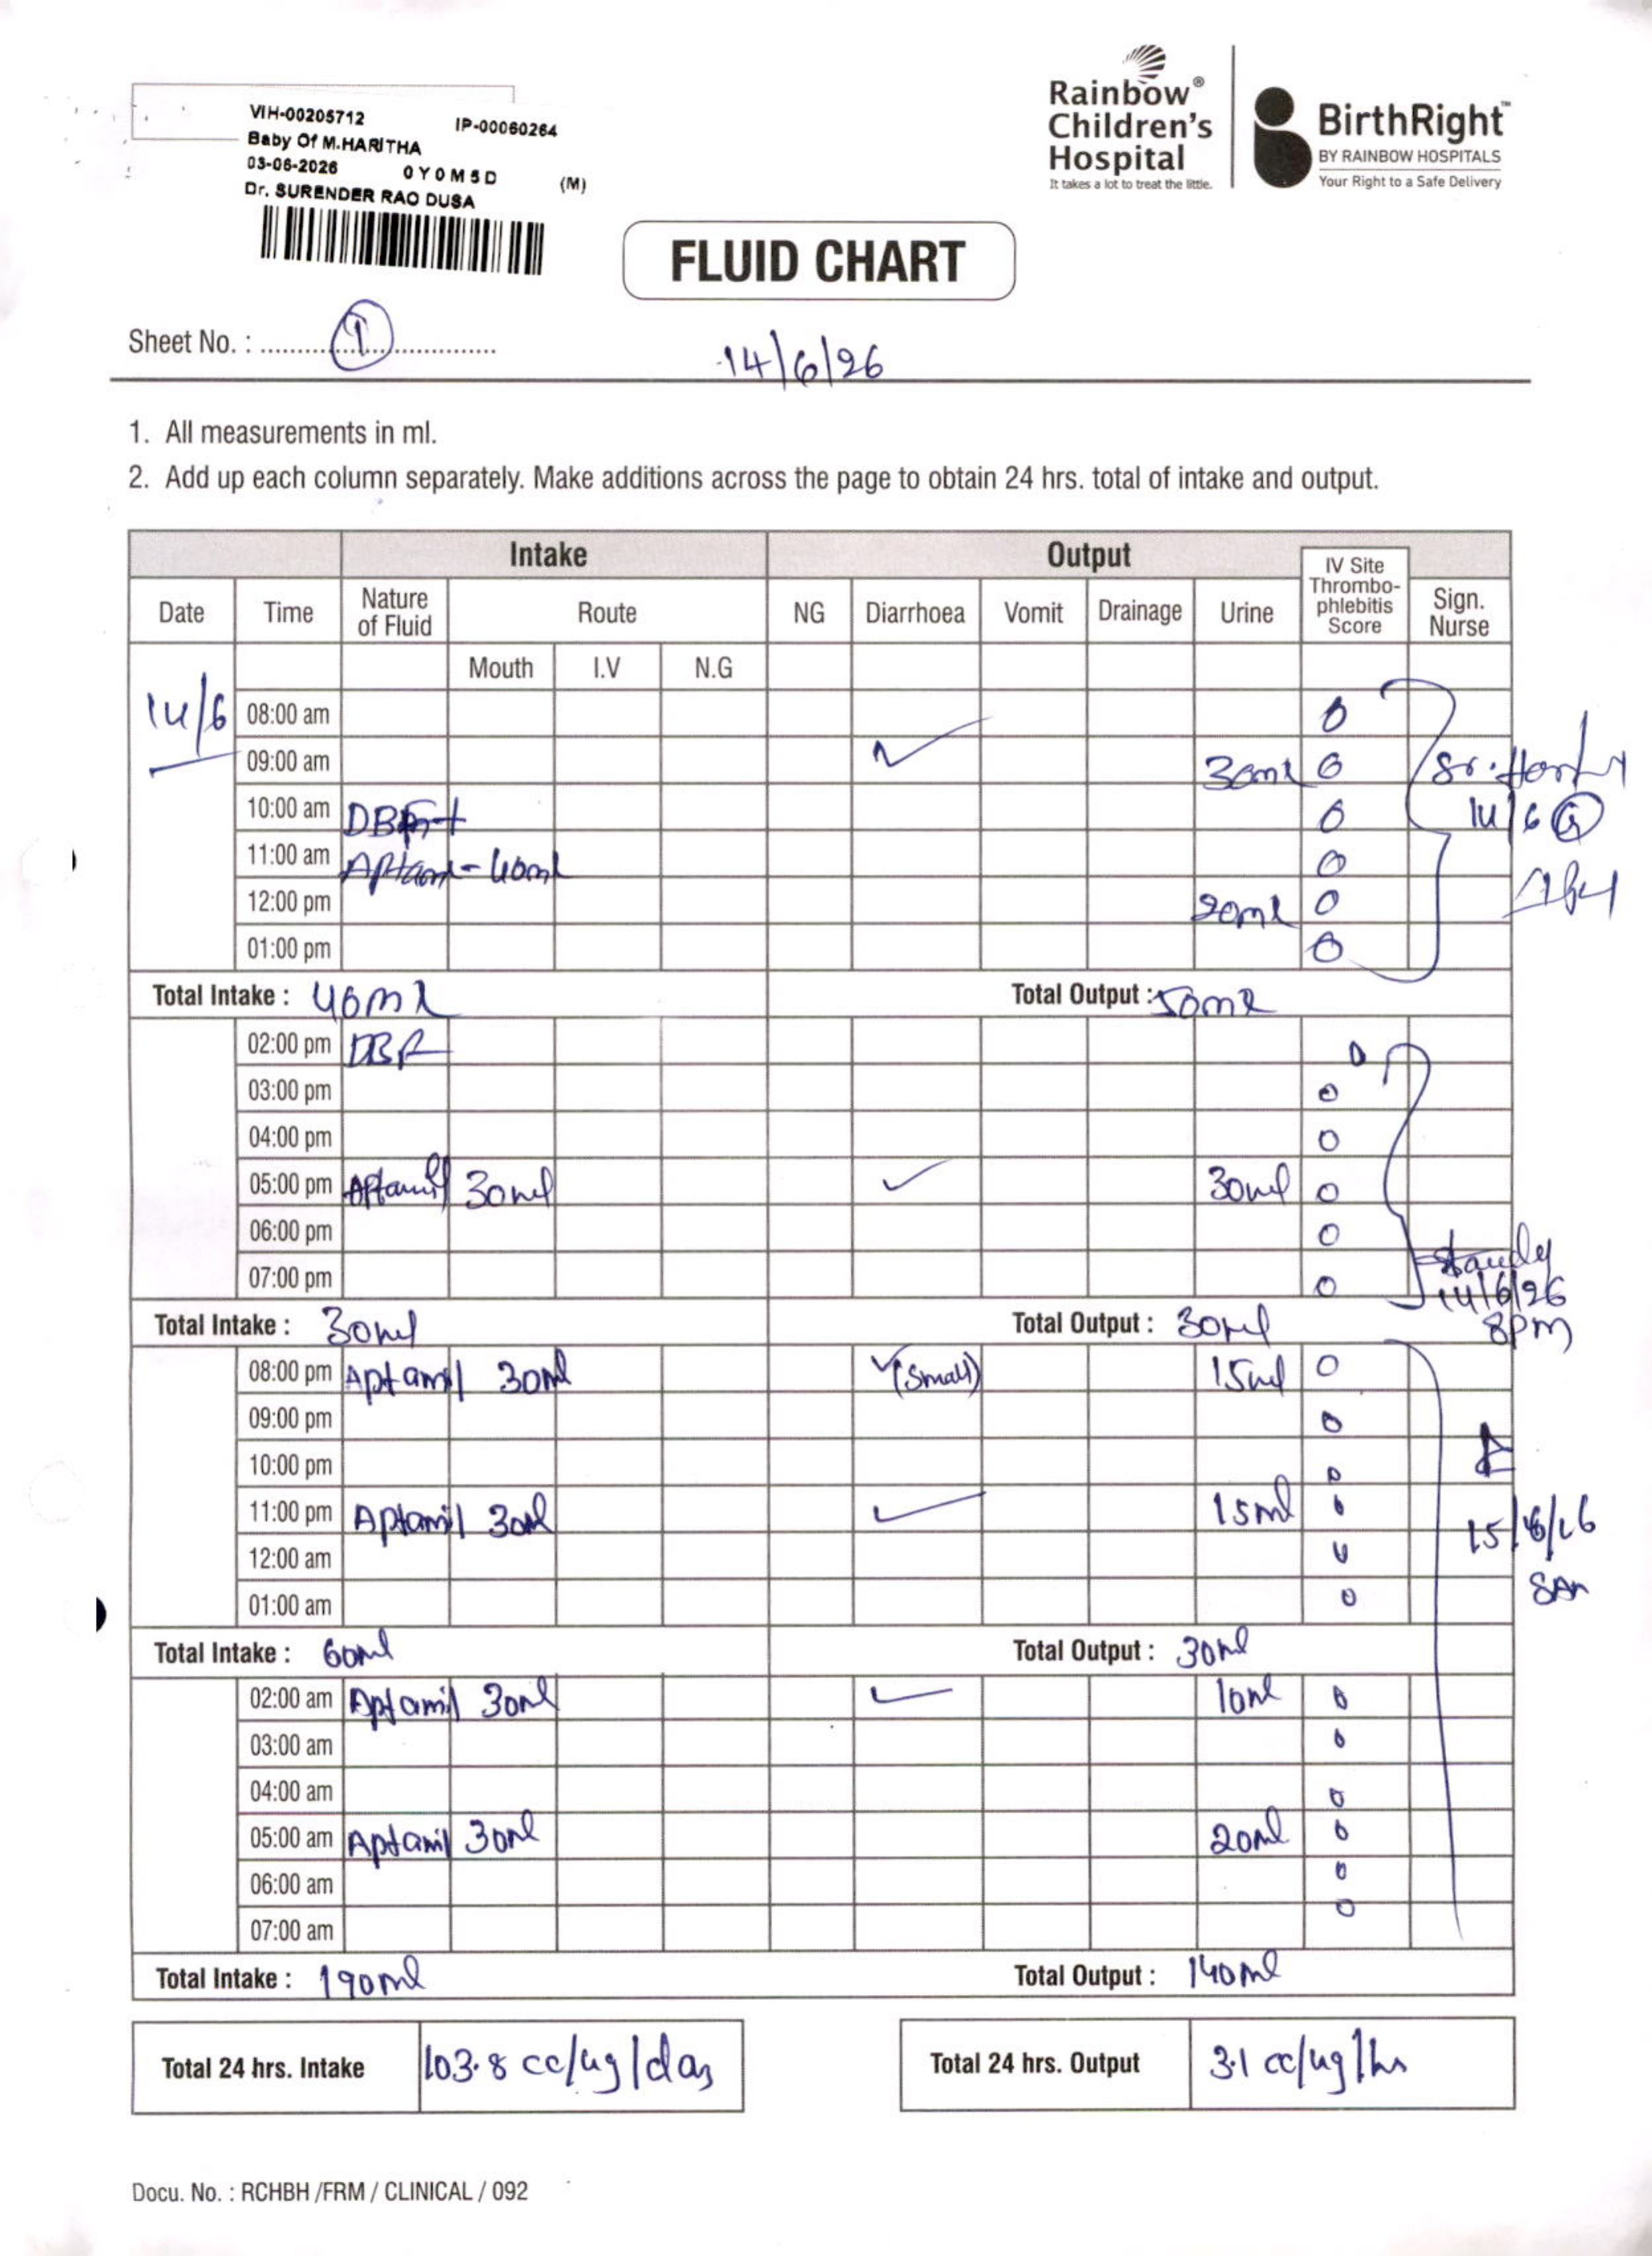 VIH-00205712 IP-00060264
Baby Of M.HARITHA
03-06-2026 0Y0M5D (M)
Dr. SURENDER RAO DUSA
Rainbow®
Children's
Hospital
It takes a lot to treat the little.
BirthRight™
BY RAINBOW HOSPITALS
Your Right to a Safe Delivery
FLUID CHART
Sheet No. : 1
14/6/26
1. All measurements in ml.
2. Add up each column separately. Make additions across the page to obtain 24 hrs. total of intake and output.
Intake Output
Date Time Nature of Fluid Route NG Diarrhoea Vomit Drainage Urine IV Site Thrombo-phlebitis Score Sign. Nurse
Mouth I.V N.G
14/6 08:00 am 0
09:00 am ✓ 30ml 0
10:00 am 0
14/6
11:00 am - 40ml 0
12:00 pm 20ml 0
01:00 pm 0
Total Intake : 40ml Total Output : 50ml
02:00 pm DBF 0
03:00 pm 0
04:00 pm 0
05:00 pm Aptamil 30ml ✓ 30ml 0
06:00 pm 0
07:00 pm 0
14/6/26
8pm
Total Intake : 30ml Total Output : 30ml
08:00 pm Aptamil 30ml ✓(small) 15ml 0
09:00 pm 0
10:00 pm 0
11:00 pm Aptamil 30ml ✓ 15ml 0
12:00 am 0
01:00 am 0
15/6/26
8Am
Total Intake : 60ml Total Output : 30ml
02:00 am Aptamil 30ml ✓ 10ml 0
03:00 am 0
04:00 am 0
05:00 am Aptamil 30ml 20ml 0
06:00 am 0
07:00 am 0
Total Intake : 190ml Total Output : 140ml
Total 24 hrs. Intake 103.8 cc/kg/day Total 24 hrs. Output 3.1 cc/kg/hr
Docu. No. : RCHBH /FRM / CLINICAL / 092